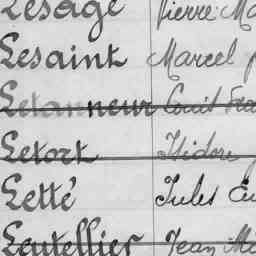 Lesage Pierre Ma
Lesaint Marcel
Letanneur Louis Fra
Letort Isidore
Letté Jules Eu
Leutellier Jean Me